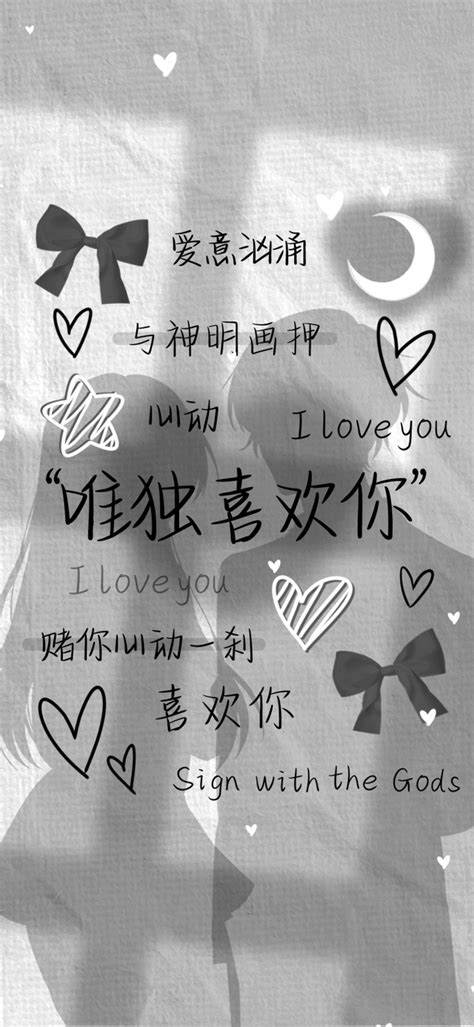 爱意汹涌
与神明画押
心动
I love you
“唯独喜欢你”
I love you
赌你心动一刹
喜欢你
Sign with the Gods